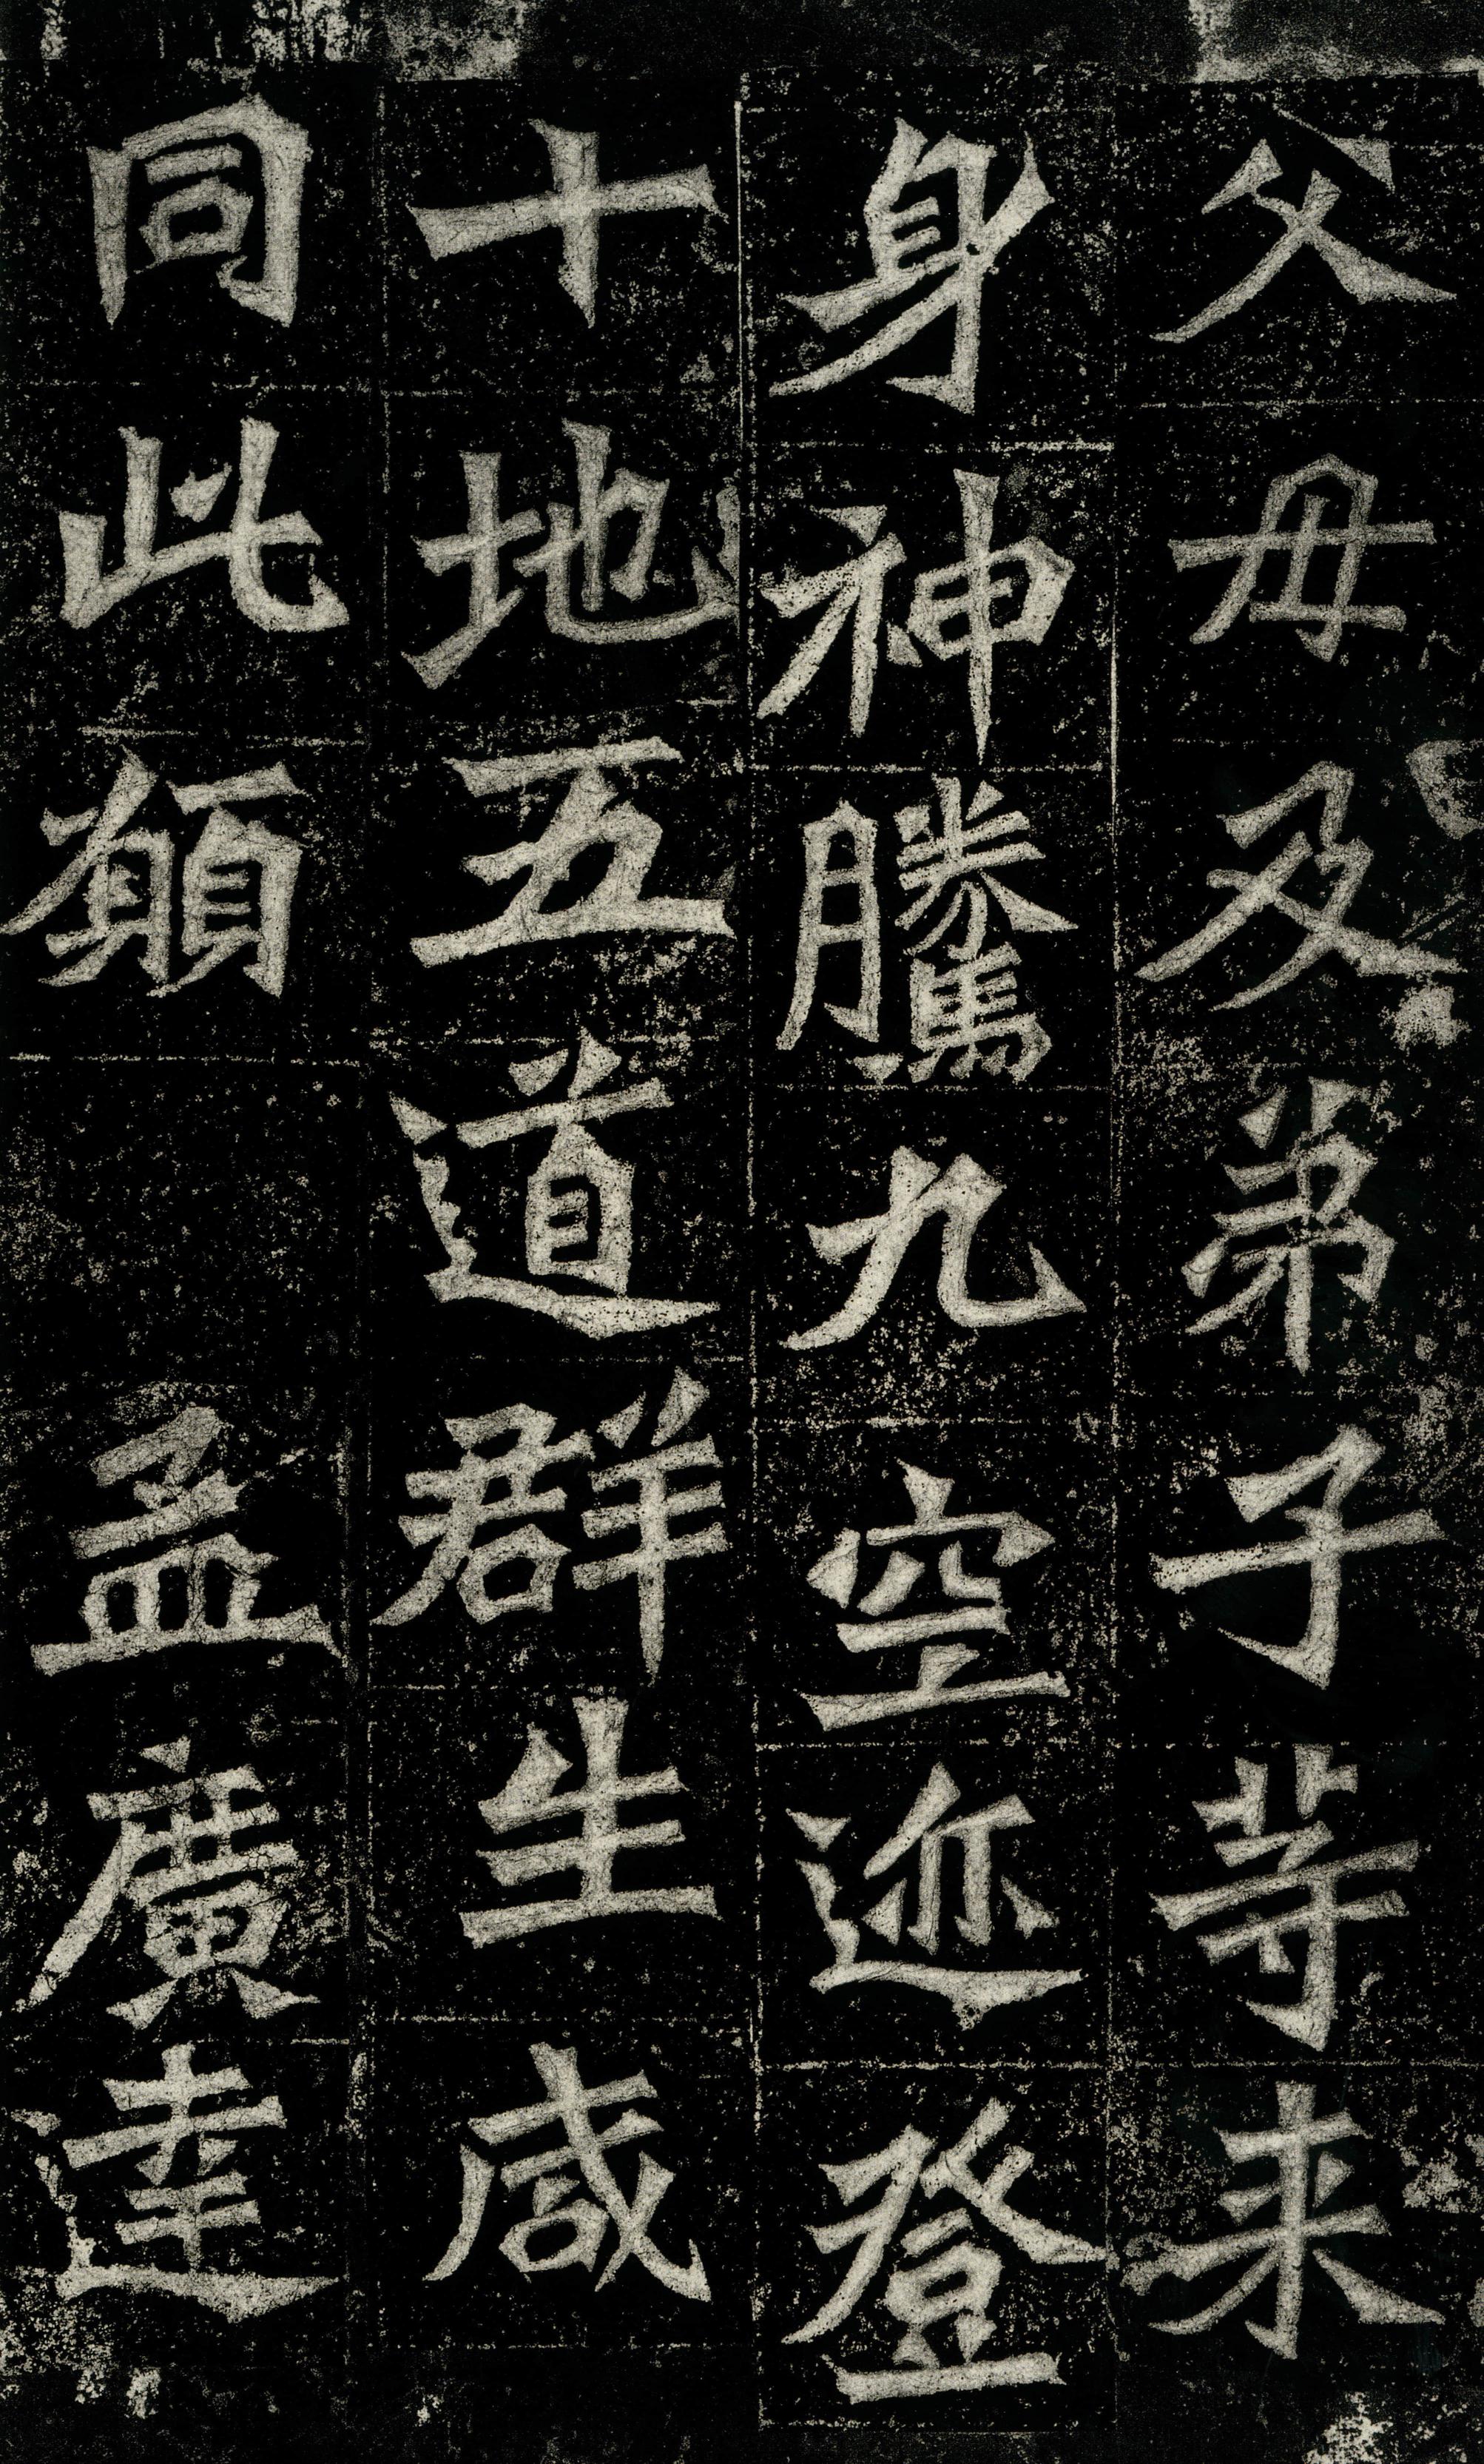 父母及弟子等来
身神騰九空迹登
十地五道群生咸
同此願 孟廣達